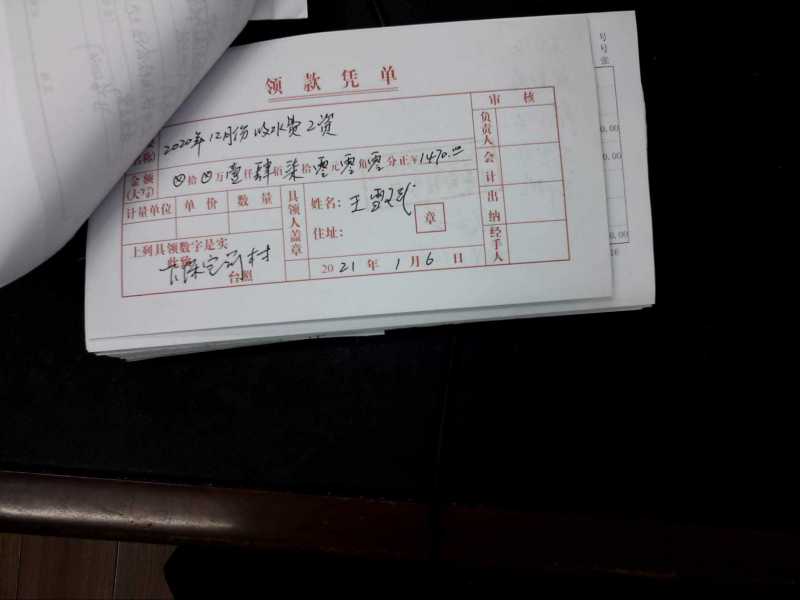 领款凭单
审核
2020年12月份收水费工资
名称
负责人
金额
(大写)
⊗拾⊗万壹仟肆佰柒拾零元零角零分正¥1470.00
会计
计量单位 单价 数量
具领人盖章
姓名：王雪
章
出纳
住址：
上列具领数字是实
此致
村
台照
经手人
2021年1月6日
号
号
张
0.00
0.00
16